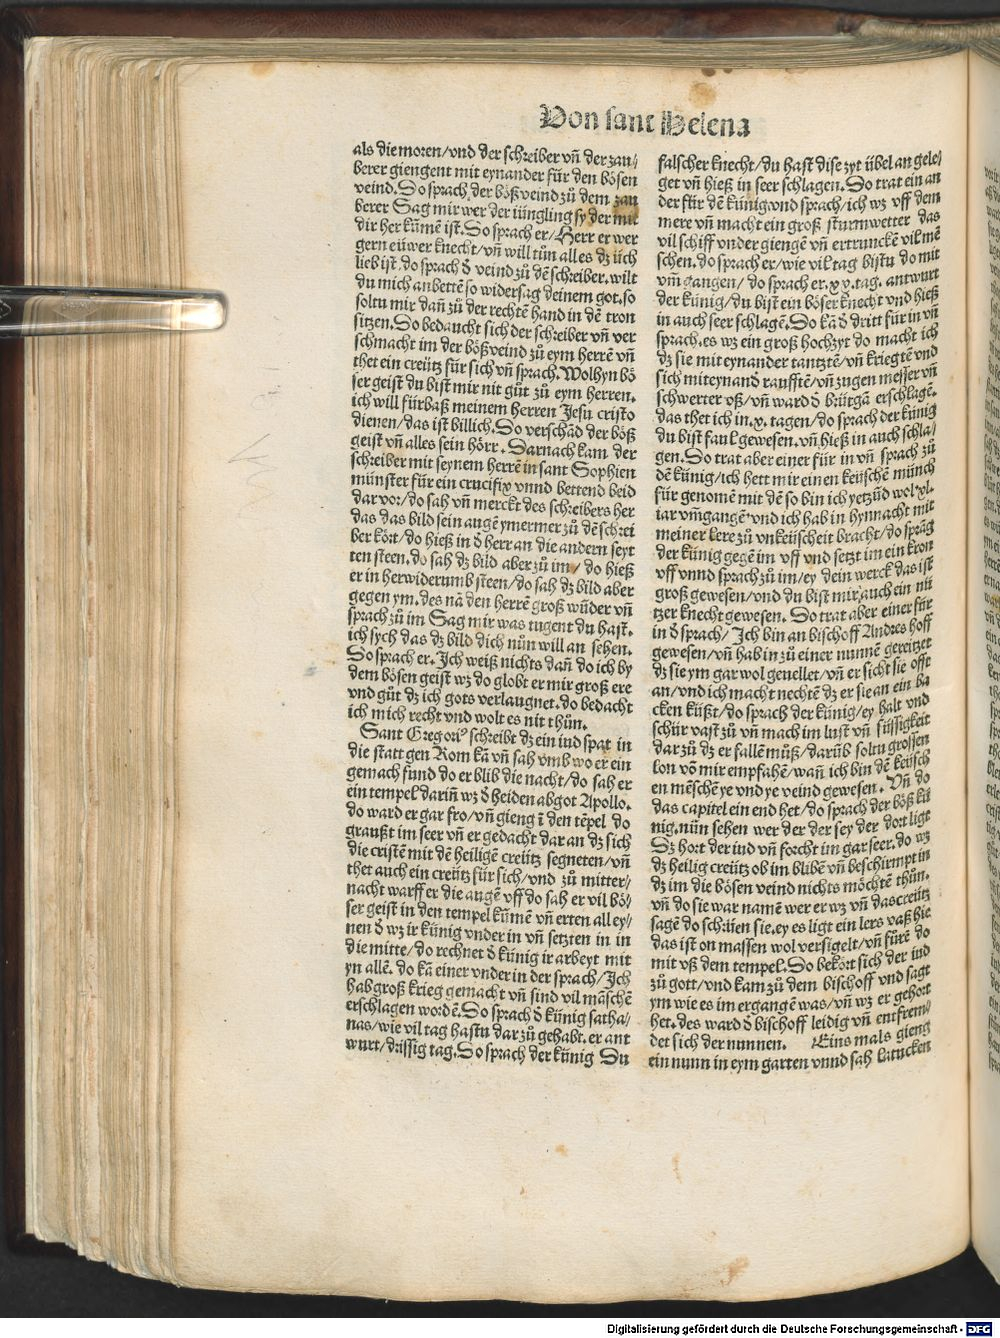 Von sant Helena
als die moren/vnd der schreiber vñ der zau/
berer giengent mit eynander für den bösen
veind. So sprach der böß veind zů dem zau
berer Sag mir wer der iüngling sy der mit
dir her kũmẽ ist. So sprach er/Herr er wer
gern eüwer knecht/vñ will tůn alles dz üch
lieb ist. do sprach ð veind zů dẽ schreiber. wilt
du mich anbettẽ so widersag deinem got. so
soltu mir dañ zů der rechtẽ hand in dẽ tron
sitzen. So bedaucht sich der schreiber vñ ver
schmacht im der böß veind zů eym herrẽ vñ
thet ein creütz für sich vñ sprach. Wolhyn bö
ser geist du bist mir nit gůt zů eym herren.
ich will fürbaß meinem herren Jesu cristo
dienen/das ist billich. So verschãd der böß
geist vñ alles sein hörr. Darnach kam der
schreiber mit seynem herrẽ in sant Sophien
münster für ein crucifix vnnd bettend beid
dar vor/do sah vñ merckt des schreibers her
das das bild sein augẽ ymermer zů dẽ schrei
ber kört/do hieß in ð herr an die andern seyt
ten steen. do sah dz bild aber zů im/do hieß
er in herwiderumb steen/do sah dz bild aber
gegen ym. des nã den herrẽ groß wũder vñ
sprach zů im Sag mir was tugent du hast.
ich sych das dz bild dich nůn will an sehen.
So sprach er. Ich weiß nichts dañ do ich by
dem bösen geist wz do globt er mir groß ere
vnd gůt dz ich gots verlaugnet. do bedacht
ich mich recht vnd wolt es nit thůn.
Sant Gregori⁹ schreibt dz ein iud spat in
die statt gen Rom kã vñ sah vmb wo er ein
gemach fund do er blib die nacht/do sah er
ein tempel dariñ wz ð heiden abgot Apollo.
do ward er gar fro/vñ gieng ĩ den tẽpel do
graußt im seer vñ er gedacht dar an dz sich
die cristẽ mit dẽ heiligẽ creütz segneten/vñ
thet auch ein creütz für sich/vnd zů mitter/
nacht warff er die augẽ vff do sah er vil bö/
ser geist in den tempel kũmẽ vñ erten all ey/
nen ð wz ir künig vnder in vñ setzten in in
die mitte/do rechner ð künig ir arbeyt mit
yn allẽ. do kã einer vnder in der sprach/Ich
hab groß krieg gemacht vñ sind vil mãschẽ
erschlagen wordẽ. So sprach ð künig satha/
nas/wie vil tag hastu dar zů gehabt. er ant
wurt/drissig tag. So sprach der künig Du
falscher knecht/du hast dise zyt übel an gele/
get vñ hieß in seer schlagen. So trat ein an
der für dẽ künig vnd sprach/ich wz vff dem
mere vñ macht ein groß sturmwetter das
vil schiff vnder giengẽ vñ ertrunckẽ vil mẽ
schen. do sprach er/wie vil tag bistu do mit
vm̃ gangen/do sprach er. xv. tag. antwurt
der künig/du bist ein böser knecht vnd hieß
in auch seer schlagẽ. So kã ð dritt für in vñ
sprach. es wz ein groß hochzyt do macht ich
dz sie mit eynander tantztẽ/vñ kriegtẽ vnd
sich mit eynand raufftẽ/vñ zugen messer vñ
schwerter vß/vñ ward ð brütgã erschlagẽ.
das thet ich in. x. tagen/do sprach der künig
du bist faul gewesen. vñ hieß in auch schla/
gen. So trat aber einer für in vñ sprach zů
dẽ künig/ich hett mir einen keüschen münch
für genomẽ mit dẽ so bin ich yetzũd wol. xl.
iar vm̃gangẽ vnd ich hab in hynnacht mit
meiner lere zů vnkeüscheit bracht/do sprãg
der künig gegẽ im vff vnd setzt im ein kron
vff vnnd sprach zů im/ey dein werck das ist
groß gewesen/vnd du bist mir auch ein nü
tzer knecht gewesen. So trat aber einer für
in ð sprach/Ich bin an bischoff Andres hoff
gewesen/vñ hab in zů einer nunnẽ gereitzet
dz sie ym gar wol geuellet/vñ er sicht sie offt
an/vnd ich macht nechtẽ dz er sie an ein ba
cken küßt/do sprach der künig/ey halt vnd
schür vast zů vñ mach im lust vñ süssigkeit
dar zů dz er fallẽ můß/darũb soltu grossen
lon võ mir empfahẽ/wañ ich bin dẽ keüsch
en mẽschẽ ye vnd ye veind gewesen. Vñ do
das capitel ein end het/do sprach der böß kü
nig. nün sehen wer der der sey der dort ligt
Dz hort der iud vñ forcht im gar seer. do wz
dz heilig creütz ob im blibẽ vñ beschirmpt in
dz im die bösen veind nichts möchtẽ thůn.
vñ do sie war namẽ wer er wz vñ das creütz
sagẽ do schriẽn sie. ey es ligt ein lers vaß hie
das ist on massen wol versigelt/vñ fürẽ do
mit vß dem tempel. So bekört sich der iud
zů gott/vnd kam zů dem bischoff vnd sagt
ym wie es im ergangẽ was/vñ wz er gehort
het. des ward ð bischoff leidig vñ entfrem/
det sich der nunnen. Eins mals gieng
ein nunn in eym garten vnnd sah latucken
Digitalisierung gefördert durch die Deutsche Forschungsgemeinschaft - DFG